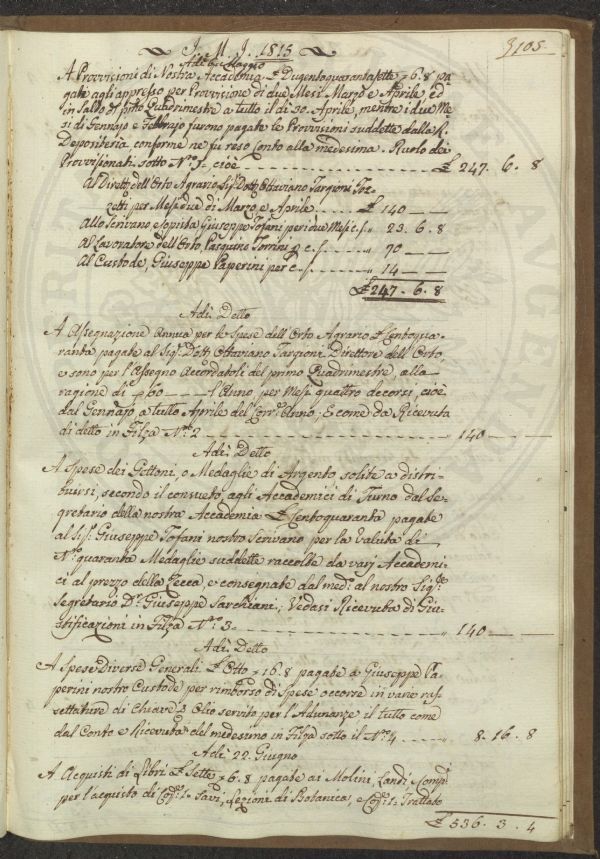 J. M. J. 1815
105
Adì 6. Maggio
A Provvisioni di Nostra Accademia £ Dugentoquarantasette 6.8 pa-
gate agli appresso per Provvisione di due Mesi Marzo e Aprile, ed
in Saldo Quadrimestre a tutto il dì 30. Aprile, mentre i due Me-
si di Gennajo e Febbrajo furono pagate le Provvisioni suddette dalla R.
Depositeria, conforme ne fu reso Conto alla medesima. Ruolo dei
Provvisionati sotto N.° 1. cioè £ 247. 6. 8
Al Dirett.e dell'Orto Agrario Sig.r Dott. Ottaviano Targioni Toz-
zetti per Mesi due di Marzo, e Aprile £ 140 — —
Allo Scrivano, e Copista Giuseppe Tofani per i due Mesi c. s. " 23. 6. 8
Al Lavoratore dell'Orto Pasquino Torrini p. c. s. " 70 — —
Al Custode, Giuseppe Paperini per c. s. " 14 — —
£ 247. 6. 8
Adì Detto
A Assegnazione Annua per le Spese dell'Orto Agrario £ Centoqua-
ranta pagate al Sig.r Dott. Ottaviano Targioni Direttore dell'Orto,
e sono per l'Assegno Accordatoli del primo Quadrimestre, alla
ragione di 60 — — l'Anno, per Mesi quattro decorsi, cioè,
dal Gennajo a tutto Aprile del Corr.e Anno, E come da Ricevuta
di detto in Filza N.° 2 " 140 — —
Adì Detto
A Spese dei Gettoni, o Medaglie di Argento solite a distri-
buirsi, secondo il consueto, agli Accademici di Turno dal Se-
gretario della nostra Accademia £ Centoquaranta pagate
al Sig.r Giuseppe Tofani nostro Scrivano per la Valuta di
N.° quaranta Medaglie suddette raccolte da varj Accademi-
ci al prezzo della Zecca, e consegnate dal med.o al nostro Sig.re
Segretario D.r Giuseppe Sarchiani; Vedasi Ricevuta di Giu-
stificazioni in Filza N.° 3 " 140 — —
Adì Detto
A Spese Diverse Generali £ Otto 16.8 pagate a Giuseppe Pa-
perini nostro Custode per rimborso di Spese occorse in varie ras-
settature di Chiave, e Olio servito per l'Adunanze il tutto come
dal Conto e Ricevuta del medesimo in Filza sotto il N.° 4 " 8. 16. 8
Adì 22. Giugno
A Acquisti di Libri £ Sette 6.8 pagate ai Molini, Landi, e Comp.
per l'acquisto di Cop. 1. Savi, Lezioni di Botanica, e Cop. 1. Trattato
£ 536. 3. 4